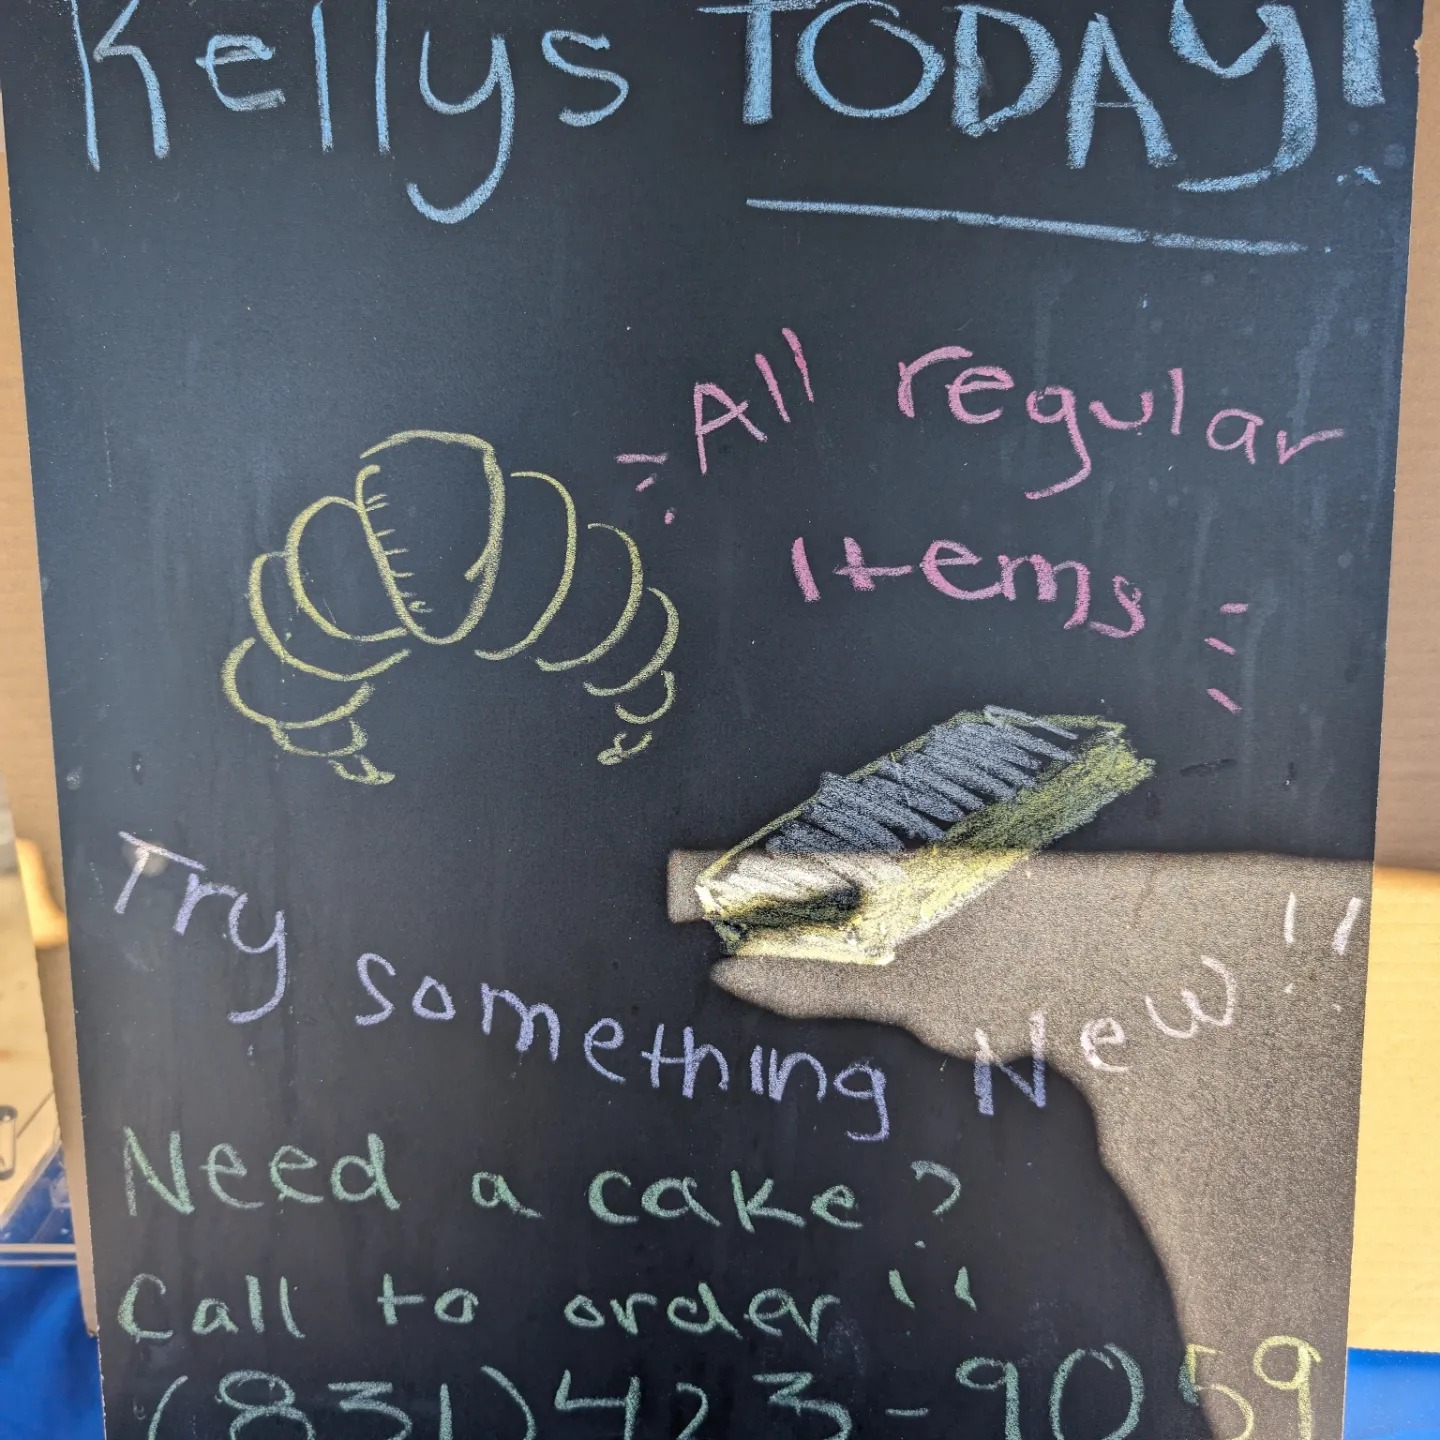 Kellys TODAY!
All regular
Items
Try something New!!
Need a cake?
Call to order!!
(831)423-9059